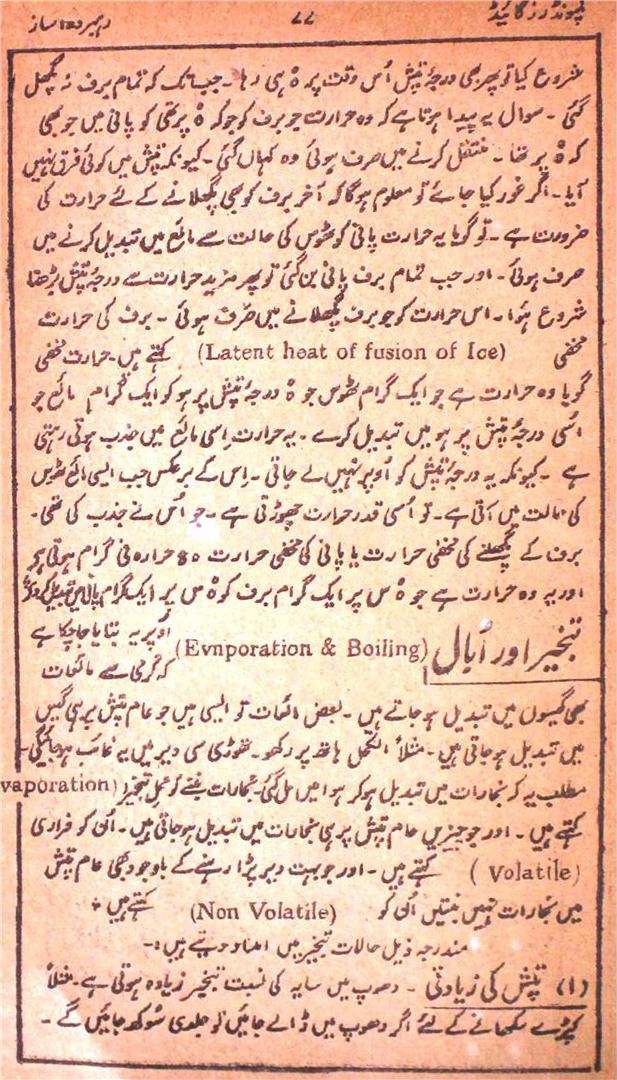 رہبر دوا ساز ۷۷ کمپونڈرز گائیڈ
شروع کیا تو پھر بھی درجۂ تپش اُس وقت پر ْ0 ہی رہا ۔ جب تک کہ تمام برف نہ پگھل
گئی ۔ سوال یہ پیدا ہوتا ہے کہ وہ حرارت جو برف کو جو کہ ْ0 پر تھی کو پانی میں جو بھی
کہ ْ0 پر تھا ۔ منتقل کرنے میں صرف ہوئی وہ کہاں گئی ۔ کیونکہ تپش میں کوئی فرق نہیں
آیا ۔ اگر غور کیا جائے تو معلوم ہوگا کہ آخر برف کو بھی پگھلانے کے لئے حرارت کی
ضرورت ہے ۔ تو گویا یہ حرارت پانی کو ٹھوس کی حالت سے مائع میں تبدیل کرنے میں
صرف ہوئی ۔ اور جب تمام برف پانی بن گئی تو پھر مزید حرارت سے درجۂ تپش بڑھنا
شروع ہؤا ۔ اس حرارت کو جو برف پگھلانے میں صَرف ہوئی ۔ برف کی حرارت
مخفی (Latent heat of fusion of Ice) کہتے ہیں ۔ حرارت مخفی
گویا وہ حرارت ہے جو ایک گرام ٹھوس جو ْ0 درجۂ تپش پر ہو کو ایک گرام مائع جو
اُسی درجۂ تپش پر ہو میں تبدیل کرے ۔ یہ حرارت اِسی مائع میں جذب ہوتی رہتی
ہے ۔ کیونکہ یہ درجۂ تپش کو اُوپر نہیں لے جاتی ۔ اِس کے برعکس جب ایسی مائع ٹھوس
کی حالت میں آتی ہے ۔ تو اُسی قدر حرارت چھوڑتی ہے ۔ جو اُس نے جذب کی تھی ۔
برف کے پگھلنے کی مخفی حرارت یا پانی کی مخفی حرارت 80 حرارہ فی گرام ہوتی ہے
اور یہ وہ حرارت ہے جو ْ0 س پر ایک گرام برف کو ْ0 س پر ایک گرام پانی میں تبدیل
تبخیر اور اُبال (Evnporation & Boiling) اُوپر یہ بتایا جا چکا ہے
کہ گرمی سے مائعات
بھی گیسوں میں تبدیل ہو جاتے ہیں ۔ بعض مائعات تو ایسی ہیں جو عام تپش پر ہی گیس
میں تبدیل ہو جاتی ہیں ۔ مثلاً الکحل ہاتھ پر رکھو ۔ تھوڑی سی دیر میں یہ غائب ہو جائیگی ۔
مطلب یہ کہ بخارات میں تبدیل ہو کر ہوا میں مل گئی ۔ بخارات بننے کو عمل تبخیر (vaporation
کہتے ہیں ۔ اور جو چیزیں عام تپش پر ہی بخارات میں تبدیل ہو جاتی ہیں ۔ اُن کو فراری
(Volatile) کہتے ہیں ۔ اور جو بہت دیر پڑا رہنے کے باوجود بھی عام تپش
میں بخارات نہیں بنتیں اُن کو (Non Volatile) کہتے ہیں ؞
مندرجہ ذیل حالات تبخیر میں امداد دیتے ہیں :۔
(۱) تپش کی زیادتی ۔ دھوپ میں سایہ کی نسبت تبخیر زیادہ ہوتی ہے ۔ مثلاً
کپڑے سکھانے کے لئے اگر دھوپ میں ڈالے جائیں تو جلدی سُوکھ جائیں گے ۔